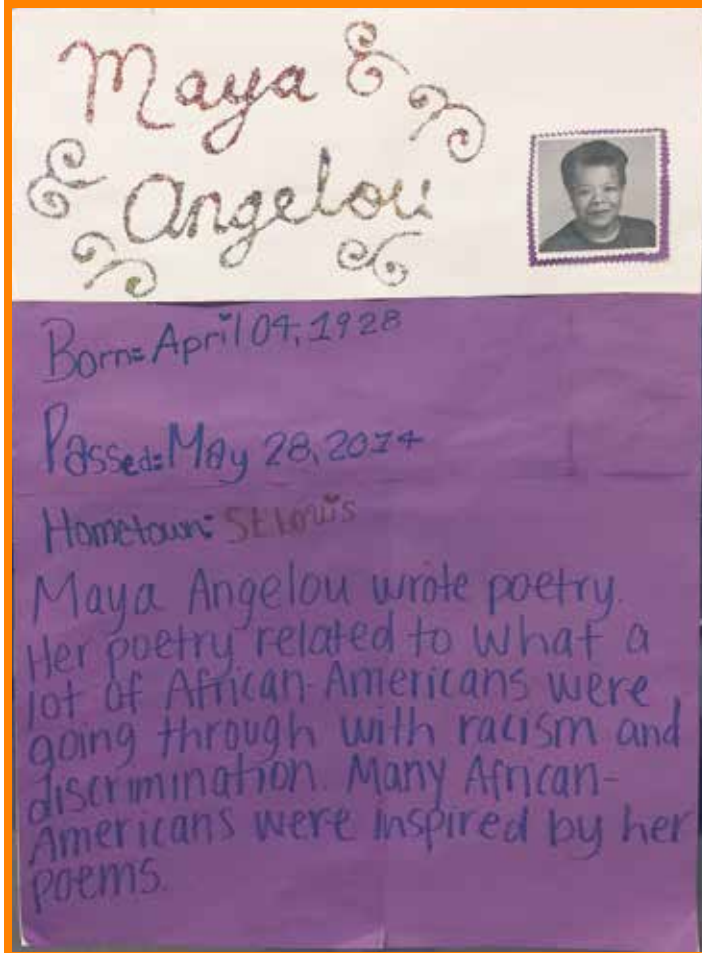 Maya
Angelou
Born: April 04, 1928
Passed: May 28, 2014
Hometown: St Louis
Maya Angelou wrote poetry.
Her poetry related to what a
lot of African-Americans were
going through with racism and
discrimination. Many African-
Americans were inspired by her
poems.